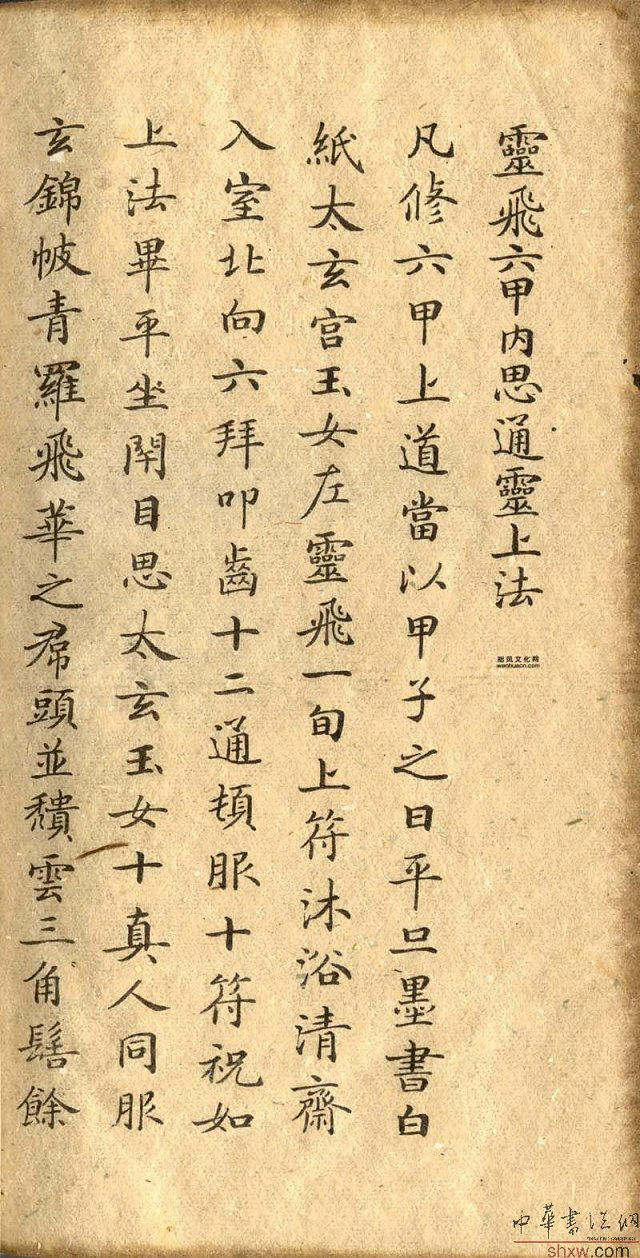 靈飛六甲内思通靈上法
凡修六甲上道當以甲子之日平旦墨書白
紙太玄宫玉女左靈飛一旬上符沐浴清齋
入室北向六拜叩齒十二通頓服十符祝如
上法畢平坐閇目思太玄玉女十真人同服
玄錦帔青羅飛華之帬頭並穨雲三角髻餘
wenhuacn.com
中華書法網
shxw.com